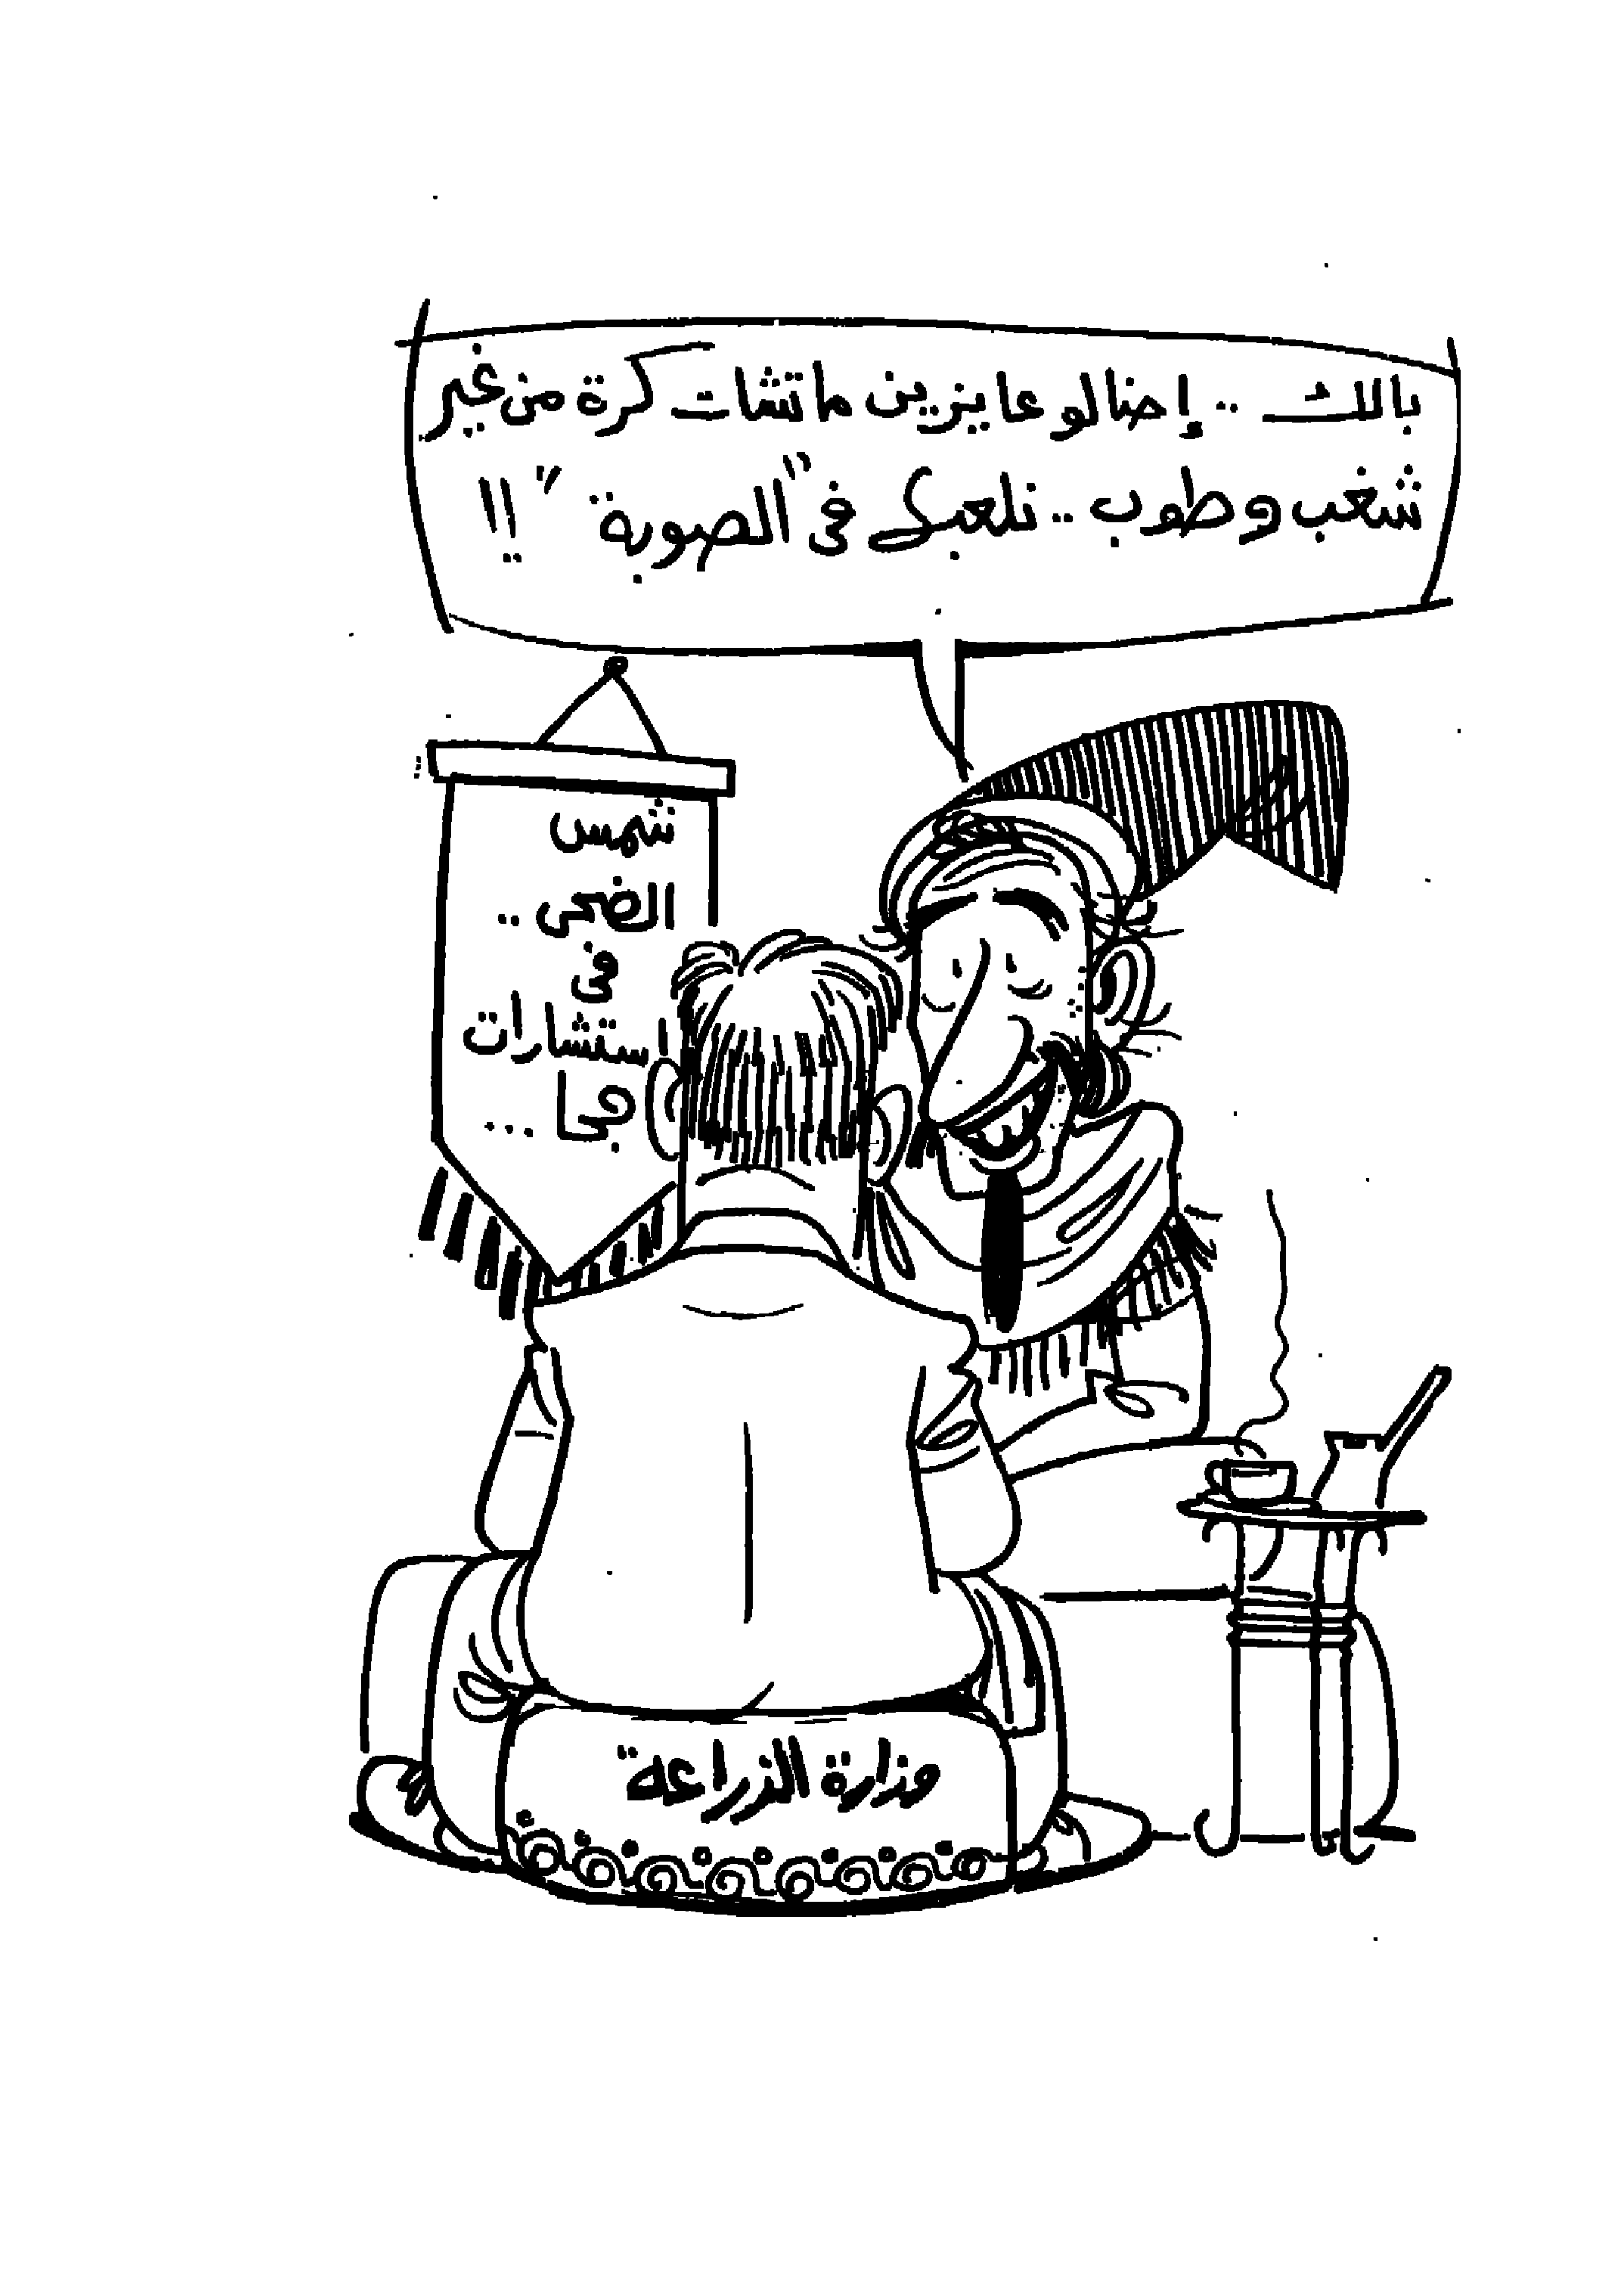 بالك .. إحنا لو عايزين ماتشات كرة من غير
شغب وطوب .. نلعبـ في "الصوبة" !!
شمس
الضحى ..
فى
استشارات
جحا ...
وزارة الزراعة